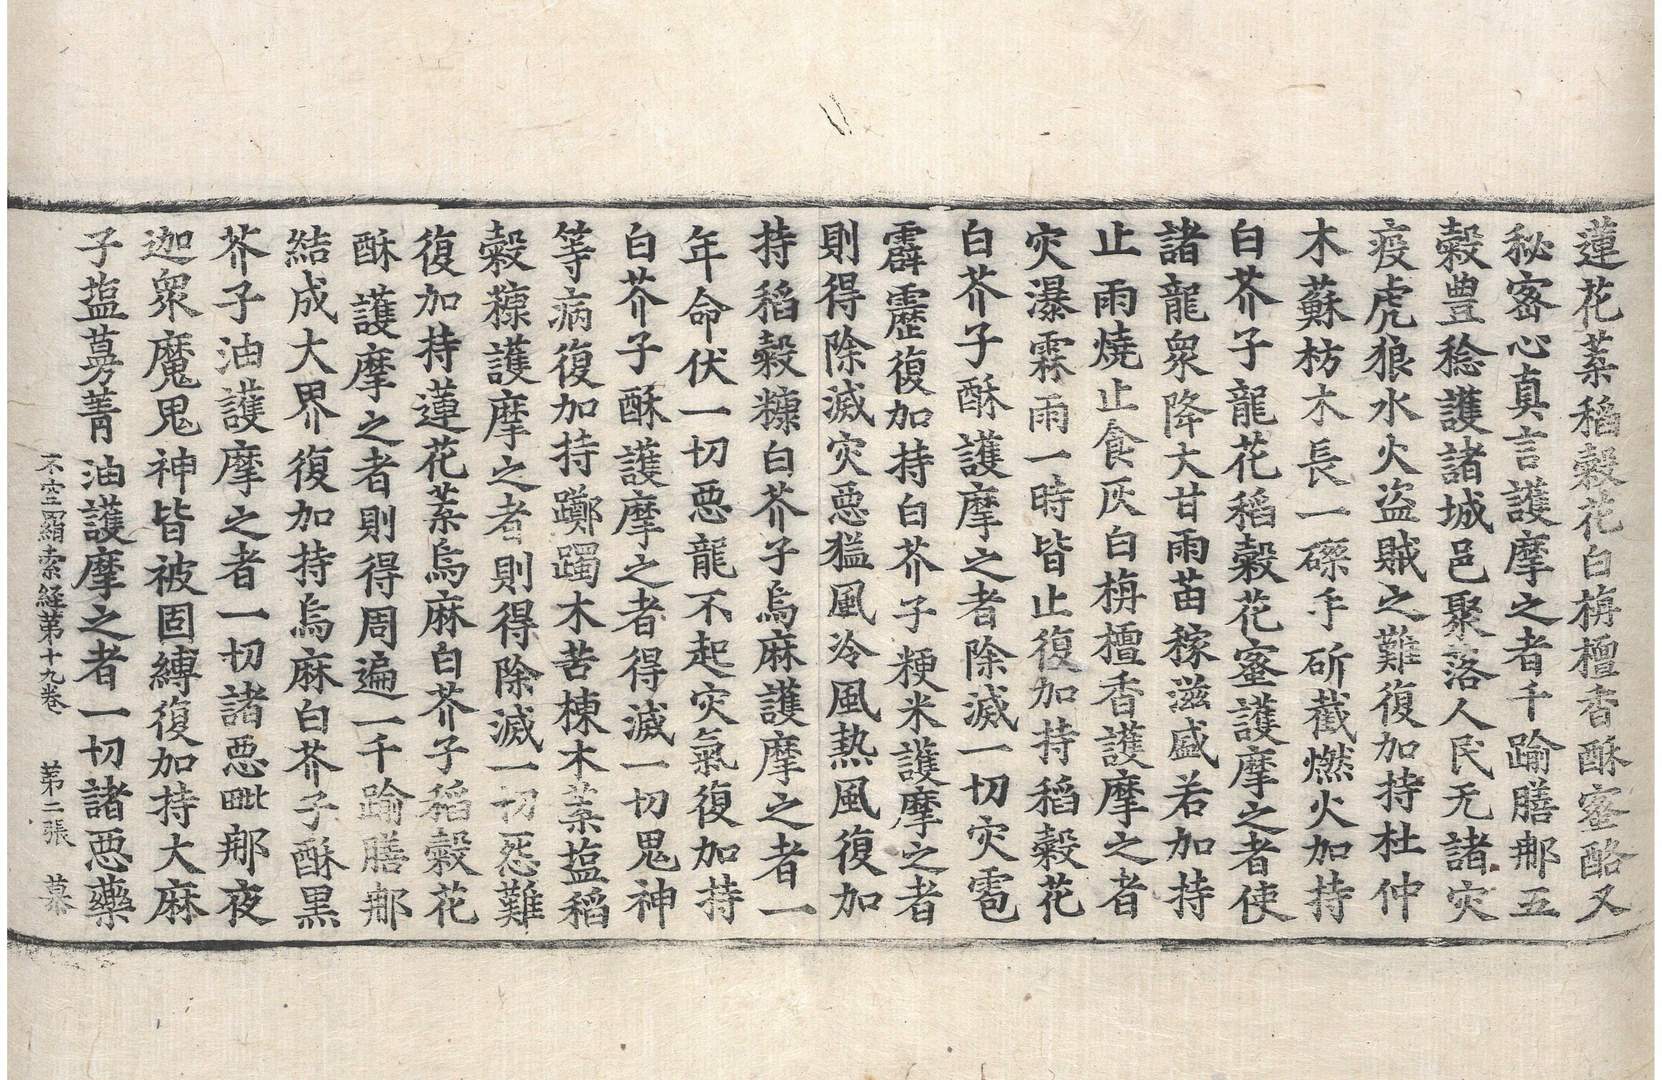 蓮花蘂稻穀花白栴檀香酥蜜酪又
秘密心真言護摩之者千踰膳那五
穀豊稔護諸城邑聚落人民无諸灾
疫虎狼水火盗賊之難復加持杜仲
木蘇枋木長一磔手斫截燃火加持
白芥子龍花稻穀花蜜護摩之者使
諸龍衆降大甘雨苗稼滋盛若加持
止雨燒止食灰白栴檀香護摩之者
灾瀑霖雨一時皆止復加持稻穀花
白芥子酥護摩之者除滅一切灾雹
霹靂復加持白芥子粳米護摩之者
則得除滅灾惡猛風冷風熱風復加
持稻穀糠白芥子烏麻護摩之者一
年命伏一切惡龍不起灾氣復加持
白芥子酥護摩之者得滅一切鬼神
等病復加持躑躅木苦楝木蘂塩稻
穀糠護摩之者則得除滅一切怨難
復加持蓮花蘂烏麻白芥子稻穀花
酥護摩之者則得周遍一千踰膳那
結成大界復加持烏麻白芥子酥黒
芥子油護摩之者一切諸惡毗那夜
迦衆魔鬼神皆被固縛復加持大麻
子塩蔓菁油護摩之者一切諸惡藥
不空羂索経第十九卷 第二張 慕